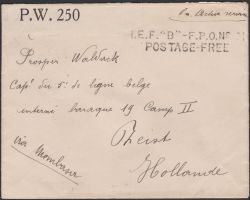 P.W. 250
On Active service
I.E.F. "B" - F.P.O. No
POSTAGE-FREE
Prosper
Cap! du 5e de ligne belge
interné baraque 19 Camp II
Zeist
Hollande
via Mombasa